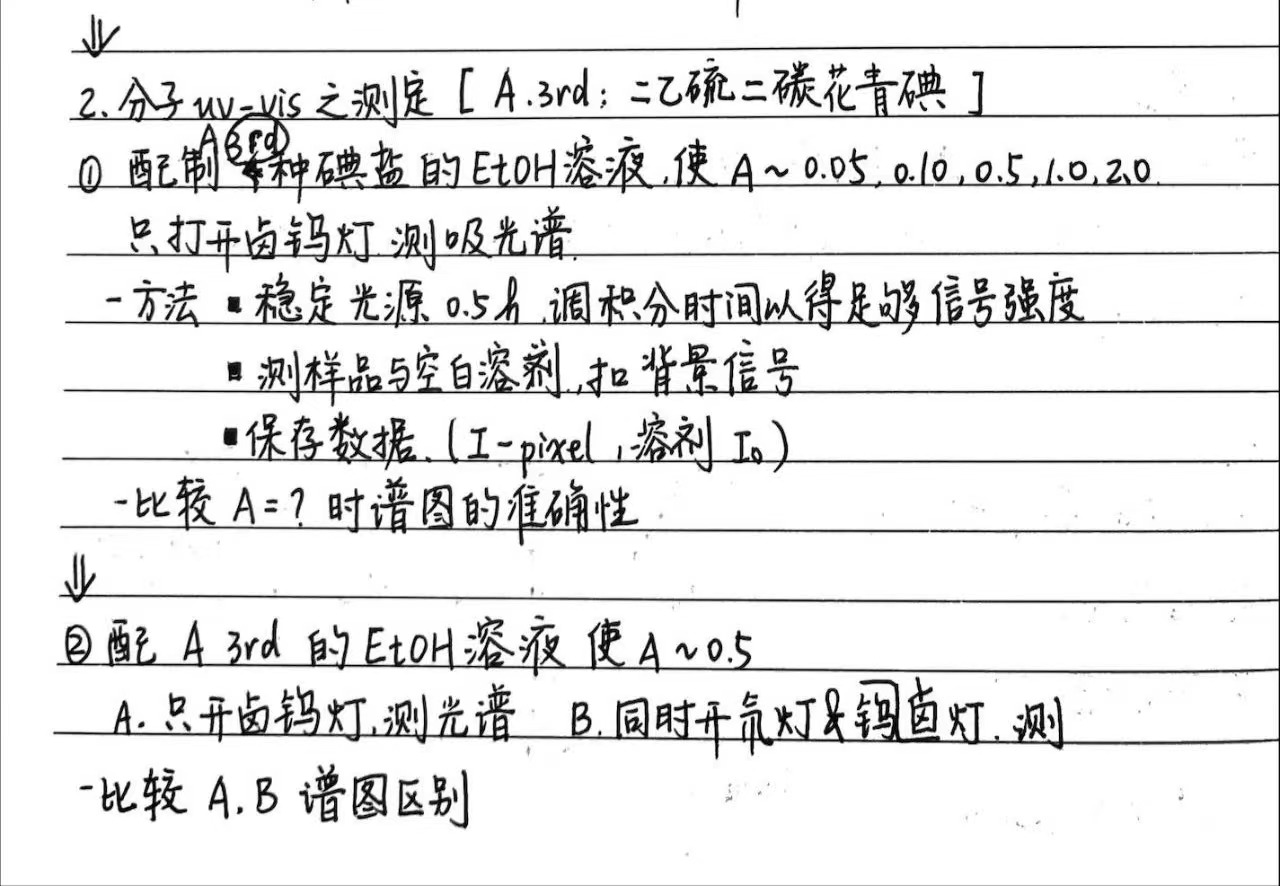 ⇓
2. 分子 uv-vis 之测定 [ A.3rd: 二乙硫二碳花青碘 ]
① 配制 A 3rd 种碘盐的 EtOH 溶液, 使 A ~ 0.05, 0.10, 0.5, 1.0, 2.0.
只打开卤钨灯. 测吸光谱.
- 方法 ▪ 稳定光源 0.5h, 调积分时间以得足够信号强度
▪ 测样品与空白溶剂, 扣背景信号
▪ 保存数据. (I-pixel, 溶剂 I₀)
- 比较 A=? 时谱图的准确性
⇓
② 配 A 3rd 的 EtOH 溶液 使 A ~ 0.5
A. 只开卤钨灯, 测光谱 B. 同时开氘灯 & 钨卤灯. 测
- 比较 A. B 谱图区别